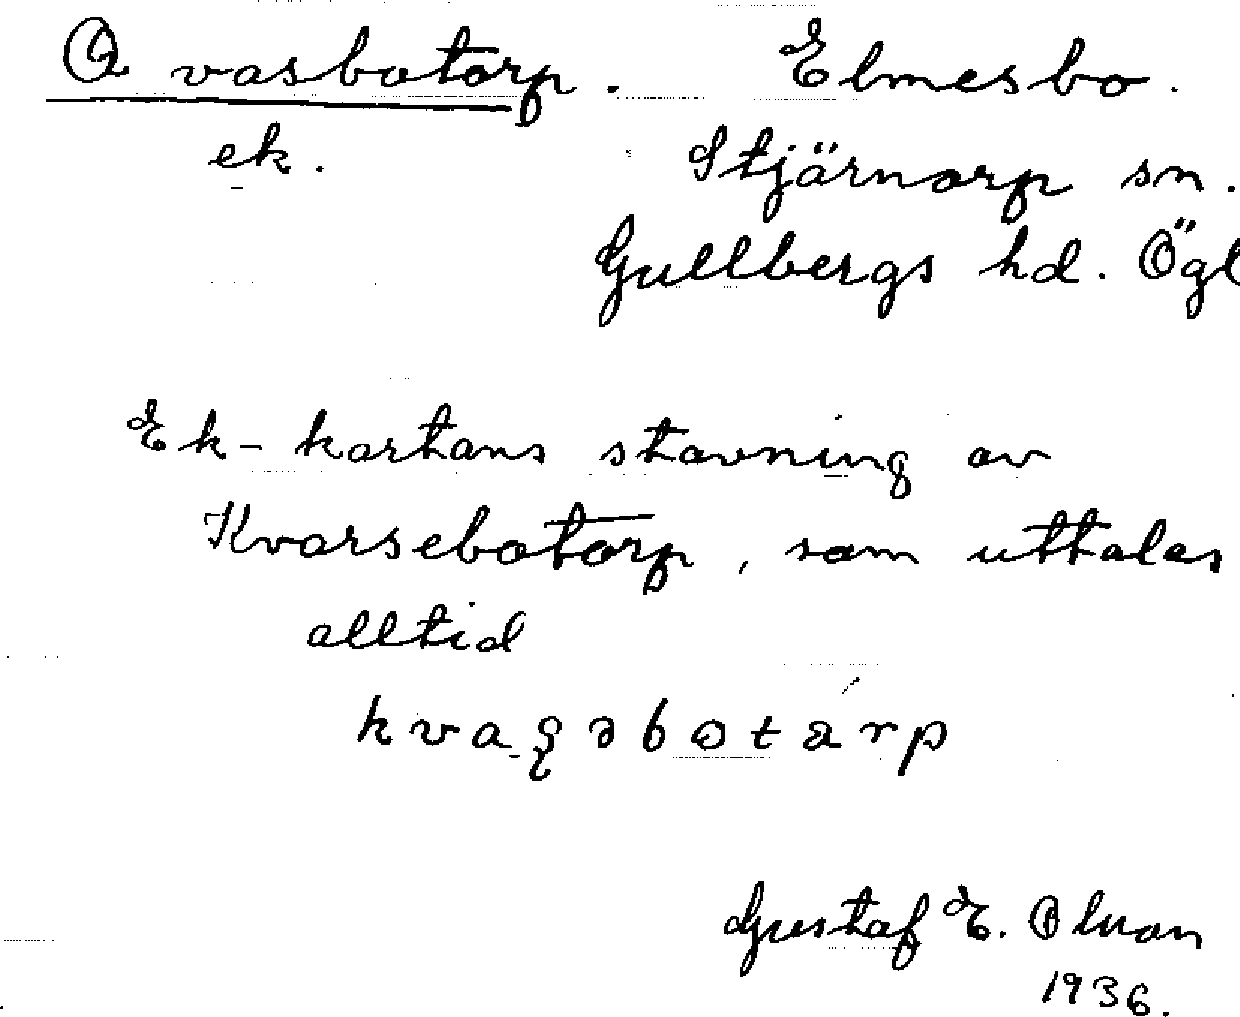 Qvasbotorp. Elmesbo.
ek. Stjärnorp sn.
Gullbergs hd. Ögl
Ek-kartans stavning av
Kvarsebotorp, som uttalas
alltid
Gustaf E. Olson
1936.